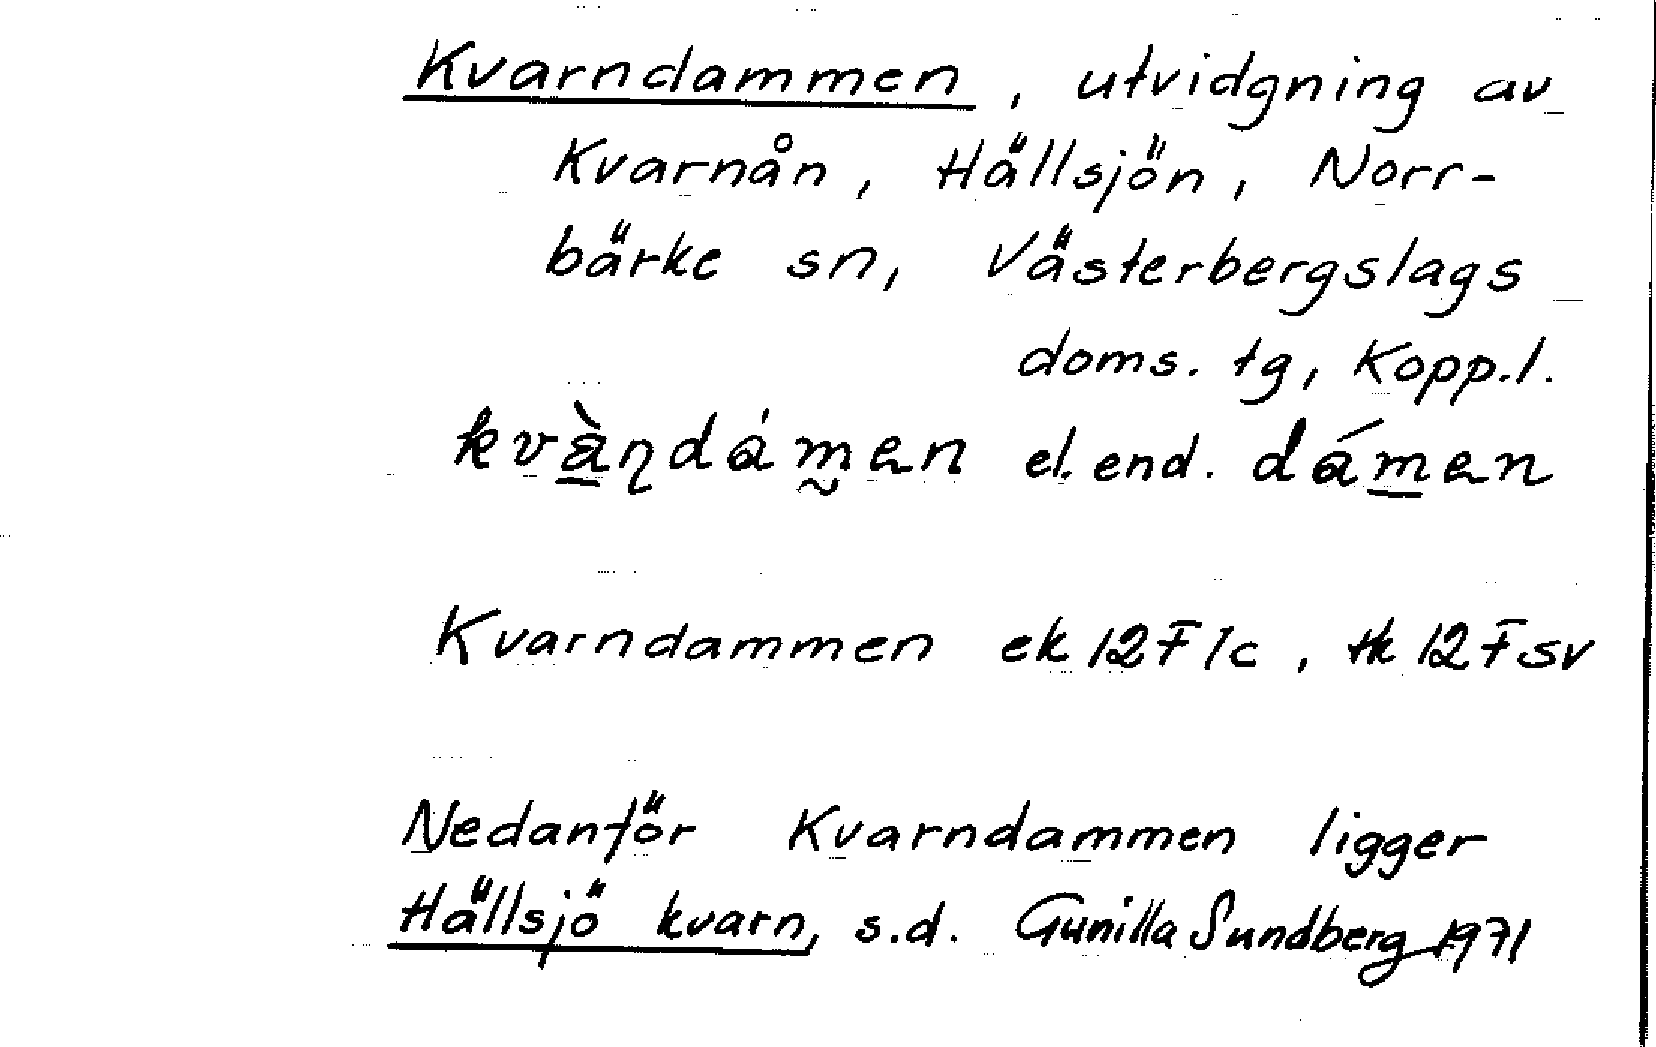 Kvarndammen, utvidgning av
Kvarnån, Hällsjön, Norr-
bärke sn, Västerbergslags
doms. tg, Kopp.l.
kvàɳdám̰en el. end. dám̲en
Kvarndammen ek 12F1c, tk 12Fsv
Nedanför Kvarndammen ligger
Hällsjö kvarn, s.d. Gunilla Sundberg 1971